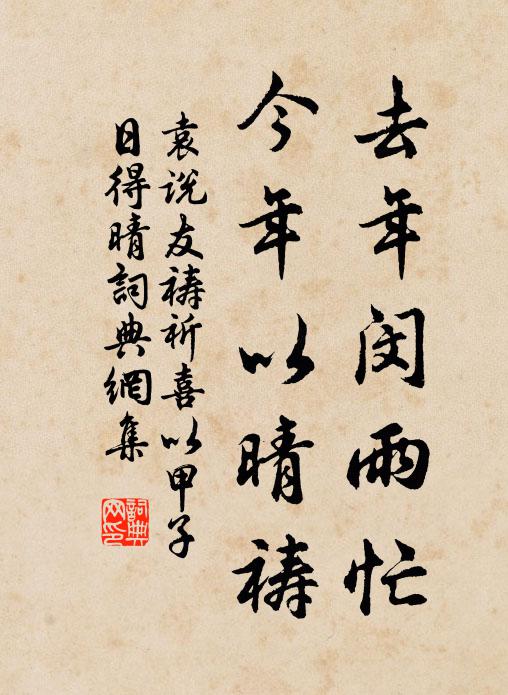 去年闵雨忙
今年以晴禱
袁说友禱祈喜以甲子
日得晴詞典網集
詞典
网印